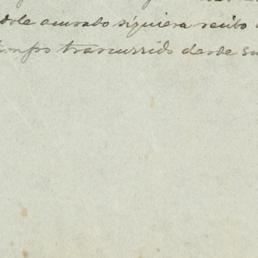 dole acusado siquiera recibo
tiempo trascurrido desde su